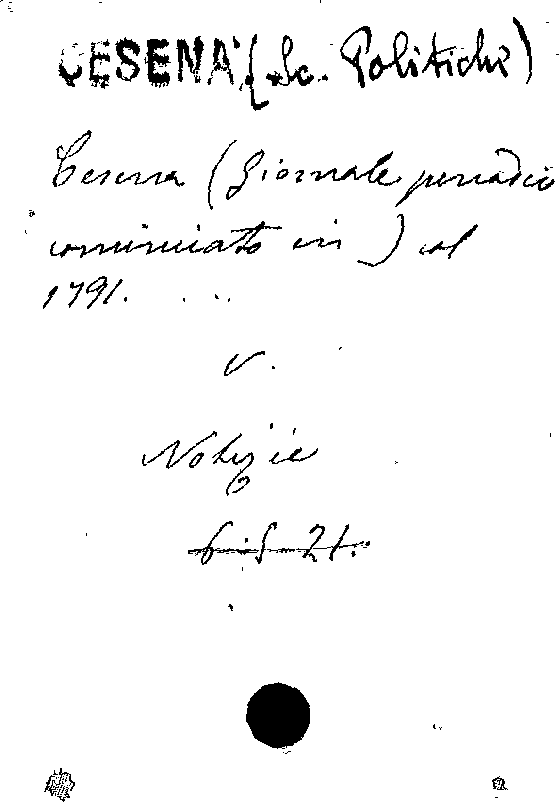 CESENA (Sc. Politiche)
Cesena (Giornale periodico
cominciato in) col
1791.
v.
Notizie
6-5-21.